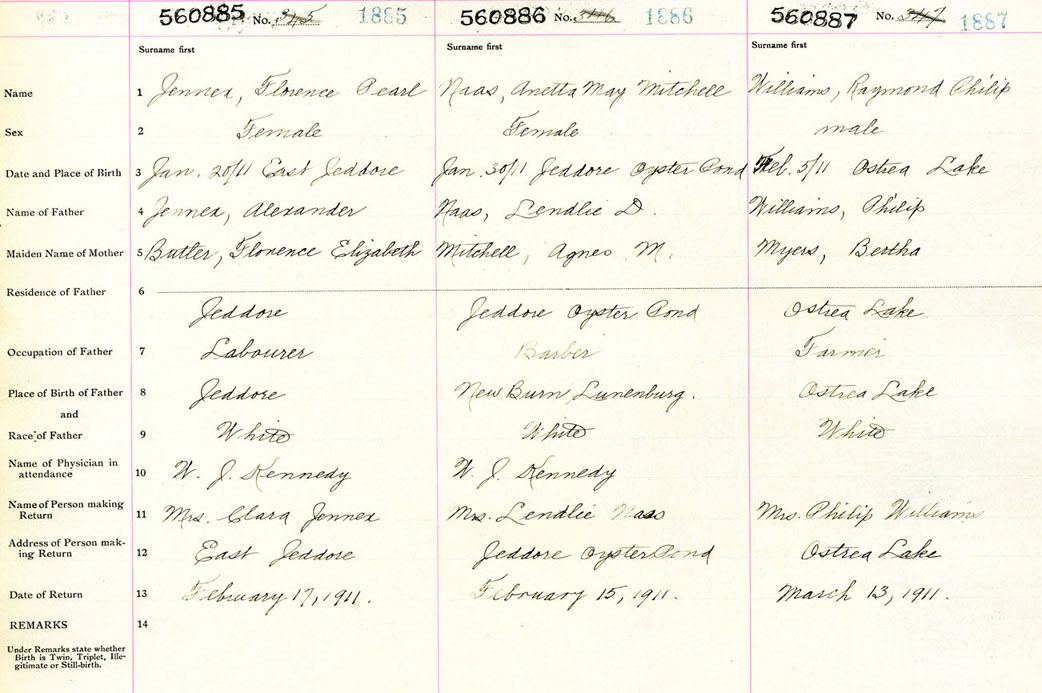 560885 No. 345 1885 560886 No. 346 1886 560887 No. 347 1887
Surname first Surname first Surname first
Name 1 Jennex, Florence Pearl Naas, Anetta May Mitchell Williams, Raymond Philip
Sex 2 Female Female male
Date and Place of Birth 3 Jan. 20/11 East Jeddore Jan. 30/11 Jeddore Oyster Pond Feb. 5/11 Ostrea Lake
Name of Father 4 Jennex, Alexander Naas, Lendlie D. Williams, Philip
Maiden Name of Mother 5 Butler, Florence Elizabeth Mitchell, Agnes M. Myers, Bertha
Residence of Father 6
Jeddore Jeddore Oyster Pond Ostrea Lake
Occupation of Father 7 Labourer Barber Farmer
Place of Birth of Father 8 Jeddore New Burn Lunenburg. Ostrea Lake
and
Race of Father 9 White White White
Name of Physician in
attendance 10 W. J. Kennedy W. J. Kennedy
Name of Person making
Return 11 Mrs. Clara Jennex Mrs. Lendlie Naas Mrs. Philip Williams
Address of Person mak-
ing Return 12 East Jeddore Jeddore Oyster Pond Ostrea Lake
Date of Return 13 February 17, 1911. February 15, 1911. March 13, 1911.
REMARKS 14
Under Remarks state whether
Birth is Twin, Triplet, Ille-
gitimate or Still-birth.